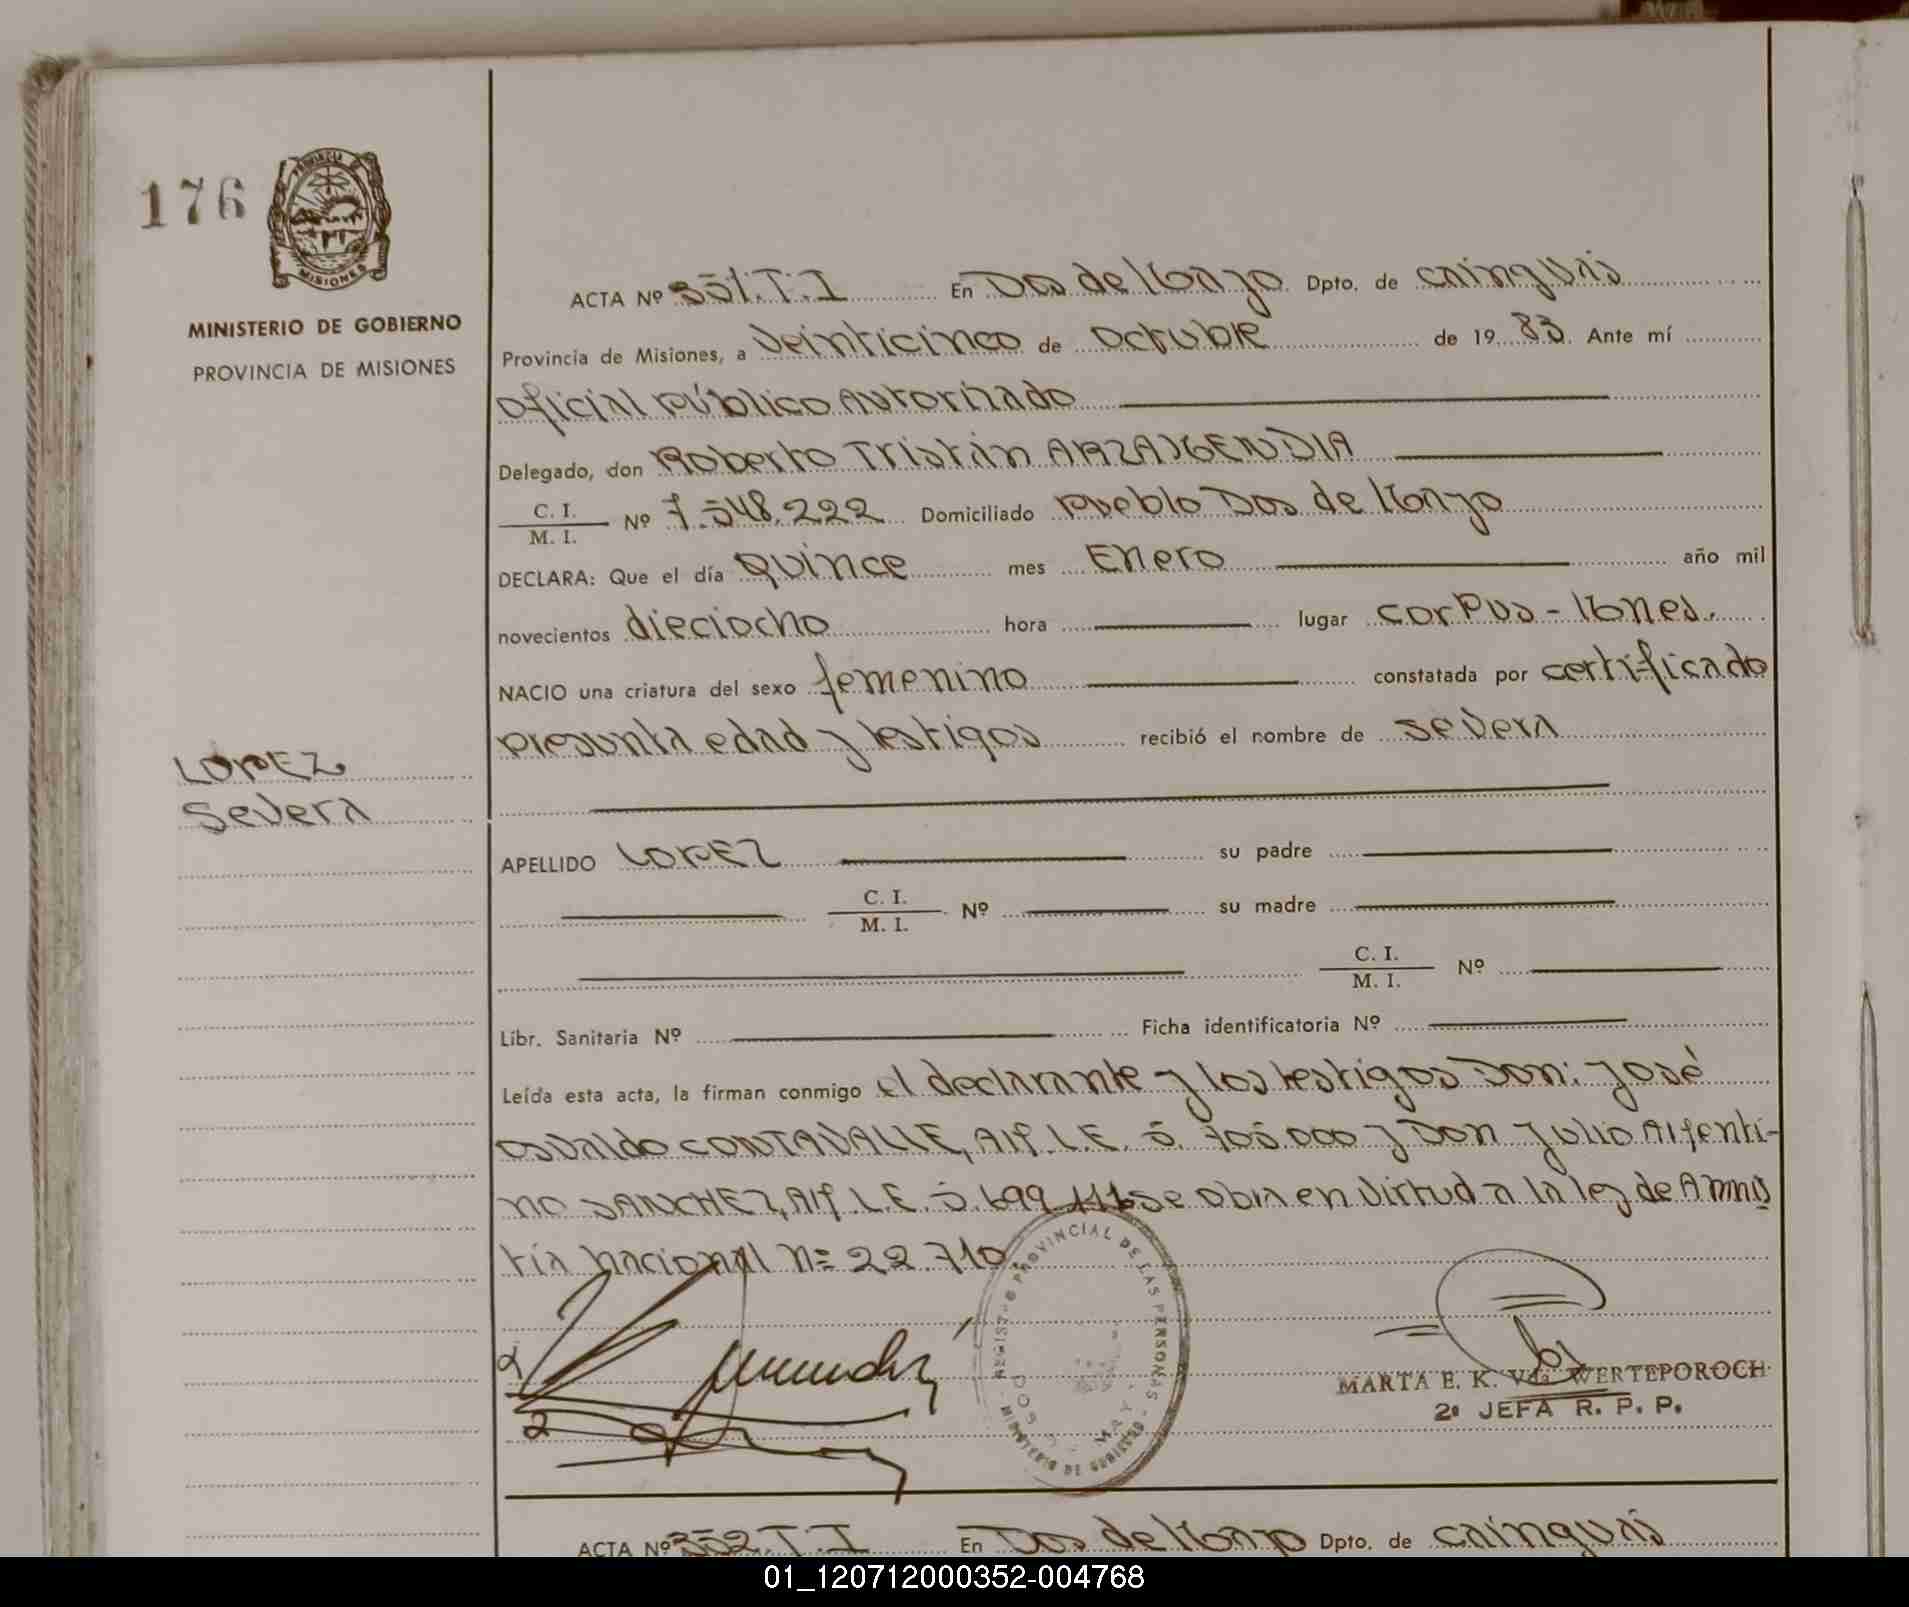 176
PROVINCIA DE
MISIONES
MINISTERIO DE GOBIERNO
PROVINCIA DE MISIONES
ACTA Nº 351.T.I En Dos de Mayo Dpto. de Cainguás
Provincia de Misiones, a Veinticinco de Octubre de 19 83. Ante mí
Oficial Público Autorizado
Delegado, don Roberto Tristán ARZAJGENDIA
C. I.
M. I. Nº 7.548.222 Domiciliado Pueblo Dos de Mayo
DECLARA: Que el día Quince mes Enero año mil
novecientos dieciocho hora lugar Corpus - Mnes.
NACIO una criatura del sexo femenino constatada por certificado
presunta edad y testigos recibió el nombre de Severa
LOPEZ
Severa
APELLIDO LOPEZ su padre
C. I.
M. I. Nº su madre
C. I.
M. I. Nº
Libr. Sanitaria Nº Ficha identificatoria Nº
Leída esta acta, la firman conmigo el declarante y los testigos Don: José
Osvaldo CONTAVALLE, Arg. L.E. 5.705.000 y Don Julio Argenti-
no SANCHEZ, Arg. L.E. 5.699.111 Se obra en Virtud a la ley de Amnis
tía Nacional Nº 22.710
REGISTRO PROVINCIAL DE LAS PERSONAS - MINISTERIO DE GOBIERNO -
DOS DE MAYO
MARTA E. K. Vda. WERTEPOROCH
2º JEFA R. P. P.
ACTA Nº 352.T.I En Dos de Mayo Dpto. de Cainguás
01_120712000352-004768